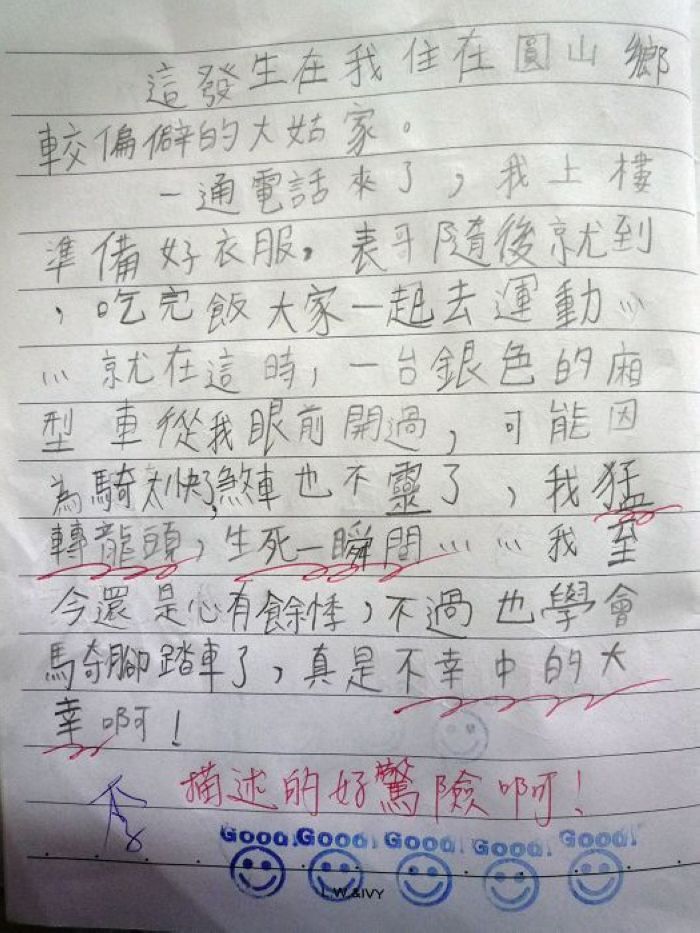 這發生在我住在圓山鄉
較偏僻的大姑家。
一通電話來了,我上樓
準備好衣服,表哥隨後就到
,吃完飯大家一起去運動…
…就在這時,一台銀色的廂
型車從我眼前開過,可能因
為騎太快了,煞車也不靈了,我猛
轉龍頭,生死一瞬間……我至
今還是心有餘悸,不過也學會
騎腳踏車了,真是不幸中的大
幸啊!
描述的好驚險啊!
Good! Good! Good! Good! Good!
L.W.&IVY